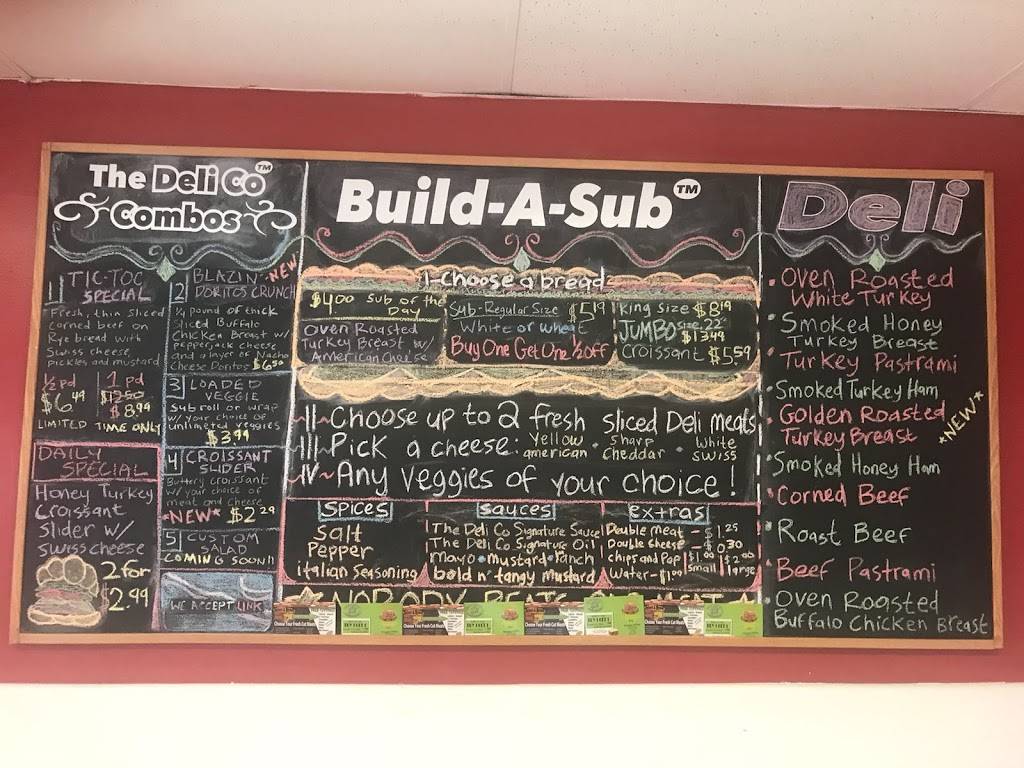 The Deli Co™
Combos
1 TIC-TOC
SPECIAL
Fresh, thin sliced
corned beef on
Rye bread with
Swiss cheese,
pickles and mustard
½ pd
$6.49
1 pd
$12.50
$8.99
LIMITED TIME ONLY
DAILY
SPECIAL
Honey Turkey
Croissant
Slider w/
Swiss cheese
2 for
$2.99
2 BLAZIN'
NEW
DORITOS CRUNCH
¼ pound of thick
sliced Buffalo
Chicken Breast w/
pepperjack cheese
and a layer of Nacho
Cheese Doritos $6.50
3 LOADED
VEGGIE
Sub roll or wrap
w/ your choice of
unlimited veggies
$3.99
4 CROISSANT
SLIDER
Buttery croissant
w/ your choice of
meat and cheese
*NEW* $2.29
5 CUSTOM
SALAD
COMING SOON!!
WE ACCEPT LINK
Build-A-Sub™
I-choose a bread
$4.00 Sub of the
Day
Oven Roasted
Turkey Breast w/
American Cheese
Sub-Regular Size $5.19
White or Wheat
Buy One Get One ½ off
King Size $8.19
JUMBO size 22"
$13.49
Croissant $5.59
II~Choose up to 2 fresh sliced Deli meats
III~Pick a cheese: Yellow american • Sharp Cheddar • White Swiss
IV~Any veggies of your choice!
Spices
Salt
Pepper
italian Seasoning
Sauces
The Deli Co Signature Sauce
The Deli Co Signature Oil
Mayo • mustard • ranch
bold n' tangy mustard
extras
Double meat - 1.25
Double Cheese 0.30
Chips and Pop $1.00 small $2.00 large
Water - $1.00
NOBODY BEATS
Deli
• Oven Roasted
White Turkey
• Smoked Honey
Turkey Breast
• Turkey Pastrami
• Smoked Turkey Ham
• Golden Roasted
Turkey Breast
*NEW*
• Smoked Honey Ham
• Corned Beef
• Roast Beef
• Beef Pastrami
• Oven Roasted
Buffalo Chicken Breast